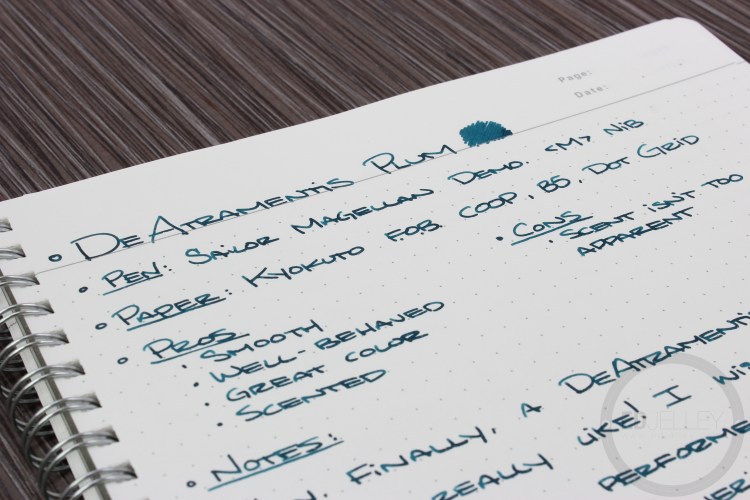 Page:
Date:
• DeAtramentis Plum
• Pen: Sailor Magellan Demo. <M> Nib
• Paper: Kyokuto F.O.B. COOP, B5, Dot Grid
• Pros
• Smooth
• Well-behaved
• Great color
• Scented
• Cons
• Scent isn't too
apparent
• Notes:
Finally, a DeAtramentis
really like! I
performe